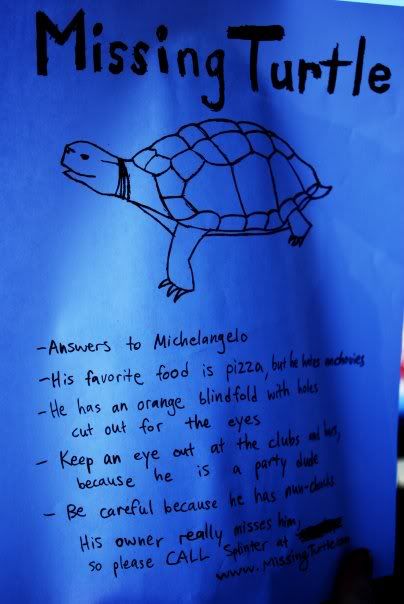 Missing Turtle
- Answers to Michelangelo
- His favorite food is pizza, but he hates anchovies
- He has an orange blindfold with holes
cut out for the eyes
- Keep an eye out at the clubs and bars,
because he is a party dude
- Be careful because he has nun-chucks
His owner really misses him,
so please CALL Splinter at
www.MissingTurtle.com